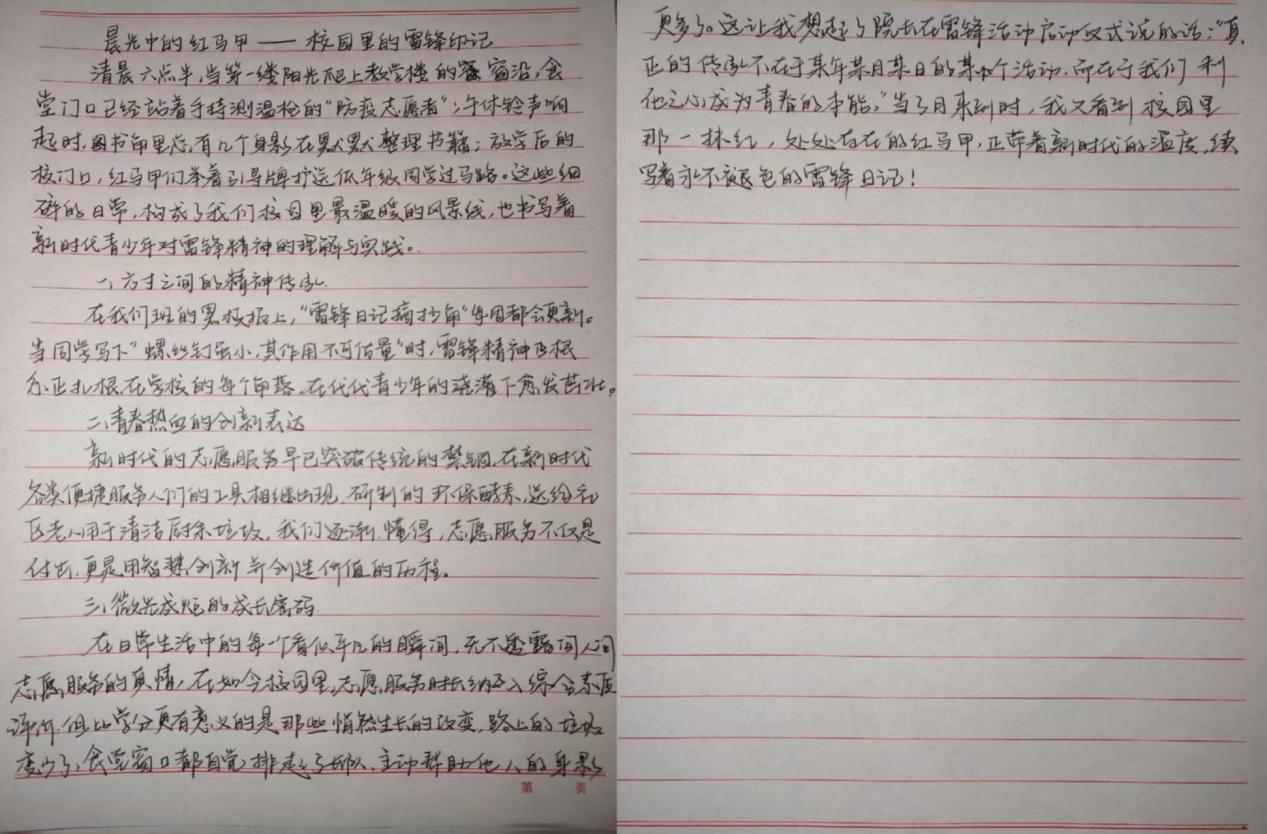 晨光中的红马甲——校园里的雷锋印记
清晨六点半,当第一缕阳光爬上教学楼的窗沿,食
堂门口已经站着手持测温枪的“防疫志愿者”;午休铃声响
起时,图书角里总有几个身影在默默整理书籍;放学后的
校门口,红马甲们举着引导牌护送低年级同学过马路。这些细
碎的日常,构成了我们校园里最温暖的风景线,也书写着
新时代青少年对雷锋精神的理解与实践。
一、方寸之间的精神传承
在我们班的黑板报上,“雷锋日记摘抄角”每周都会更新。
当同学写下“螺丝钉虽小,其作用不可估量”时,雷锋精神的根
系正扎根在学校的每个角落、在代代青少年的浇灌下愈发茁壮。
二、青春热血的创新表达
新时代的志愿服务早已突破传统的禁锢,在新时代
各类便捷服务人们的工具相继出现,研制的环保酵素,送给社
区老人用于清洁厨余垃圾,我们逐渐懂得,志愿服务不仅是
付出,更是用智慧创新与创造价值的历程。
三、微光成炬的成长密码
在日常生活中的每一个看似平凡的瞬间,无不透露间人间
志愿服务的真情,在如今校园里,志愿服务时长纳入综合素质
评价,但比学分更有意义的是那些悄然生长的改变,路上的垃圾
变少了,食堂窗口都自觉排起了长队、主动帮助他人的身影
第 页
更多了。这让我想起了院长在雷锋活动启动仪式说的话:“真
正的传承不在于某年某月某日的某个活动,而在于我们利
他之心成为青春的本能。”当3月来到时,我又看到校园里
那一抹红,处处存在的红马甲,正带着新时代的温度,续
写着永不褪色的雷锋日记!